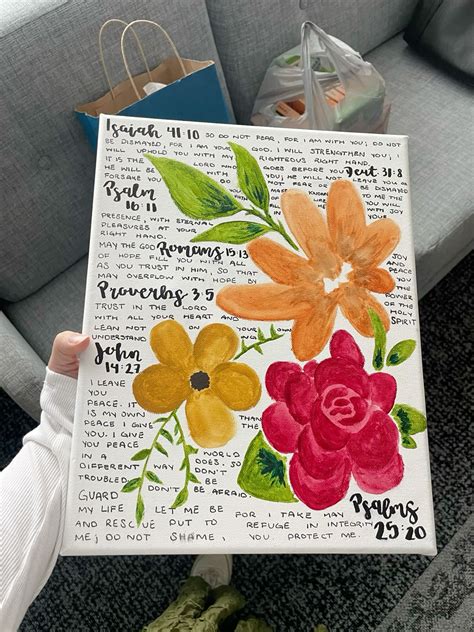 Isaiah 41:10 SO DO NOT FEAR, FOR I AM WITH YOU; DO NOT
BE DISMAYED, FOR I AM YOUR GOD. I WILL STRENGTHEN YOU, I
WILL UPHOLD YOU WITH MY RIGHTEOUS RIGHT HAND.
IT IS THE LORD WHO Deut 31:8
HE WILL BE GOES BEFORE YOU
FORSAKE YOU DO NOT FEAR OR
Psalm
16:11 WITH JOY
PRESENCE, WITH ETERNAL YOUR
PLEASURES AT YOUR
RIGHT HAND.
MAY THE GOD Romans 15:13 JOY
OF HOPE FILL YOU WITH ALL AND
AS YOU TRUST IN HIM, SO THAT PEACE
MAY OVERFLOW WITH HOPE BY YOU
Proverbs 3:5 THE
TRUST IN THE LORD POWER
WITH ALL YOUR HEART AND OF THE
LEAN NOT ON YOUR HOLY
UNDERSTANDING SPIRIT
John
14:27
I LEAVE
YOU
PEACE. IT
IS MY OWN THAN
PEACE I GIVE THE
YOU. I GIVE
YOU PEACE
IN A WORLD
DIFFERENT WAY DOES. SO
TROUBLED DON'T
DON'T BE AFRAID. BE
GUARD
MY LIFE LET ME BE FOR I TAKE MAY Psalms
AND RESCUE PUT TO REFUGE IN INTEGRITY 25:20
ME; DO NOT SHAME, YOU PROTECT ME.